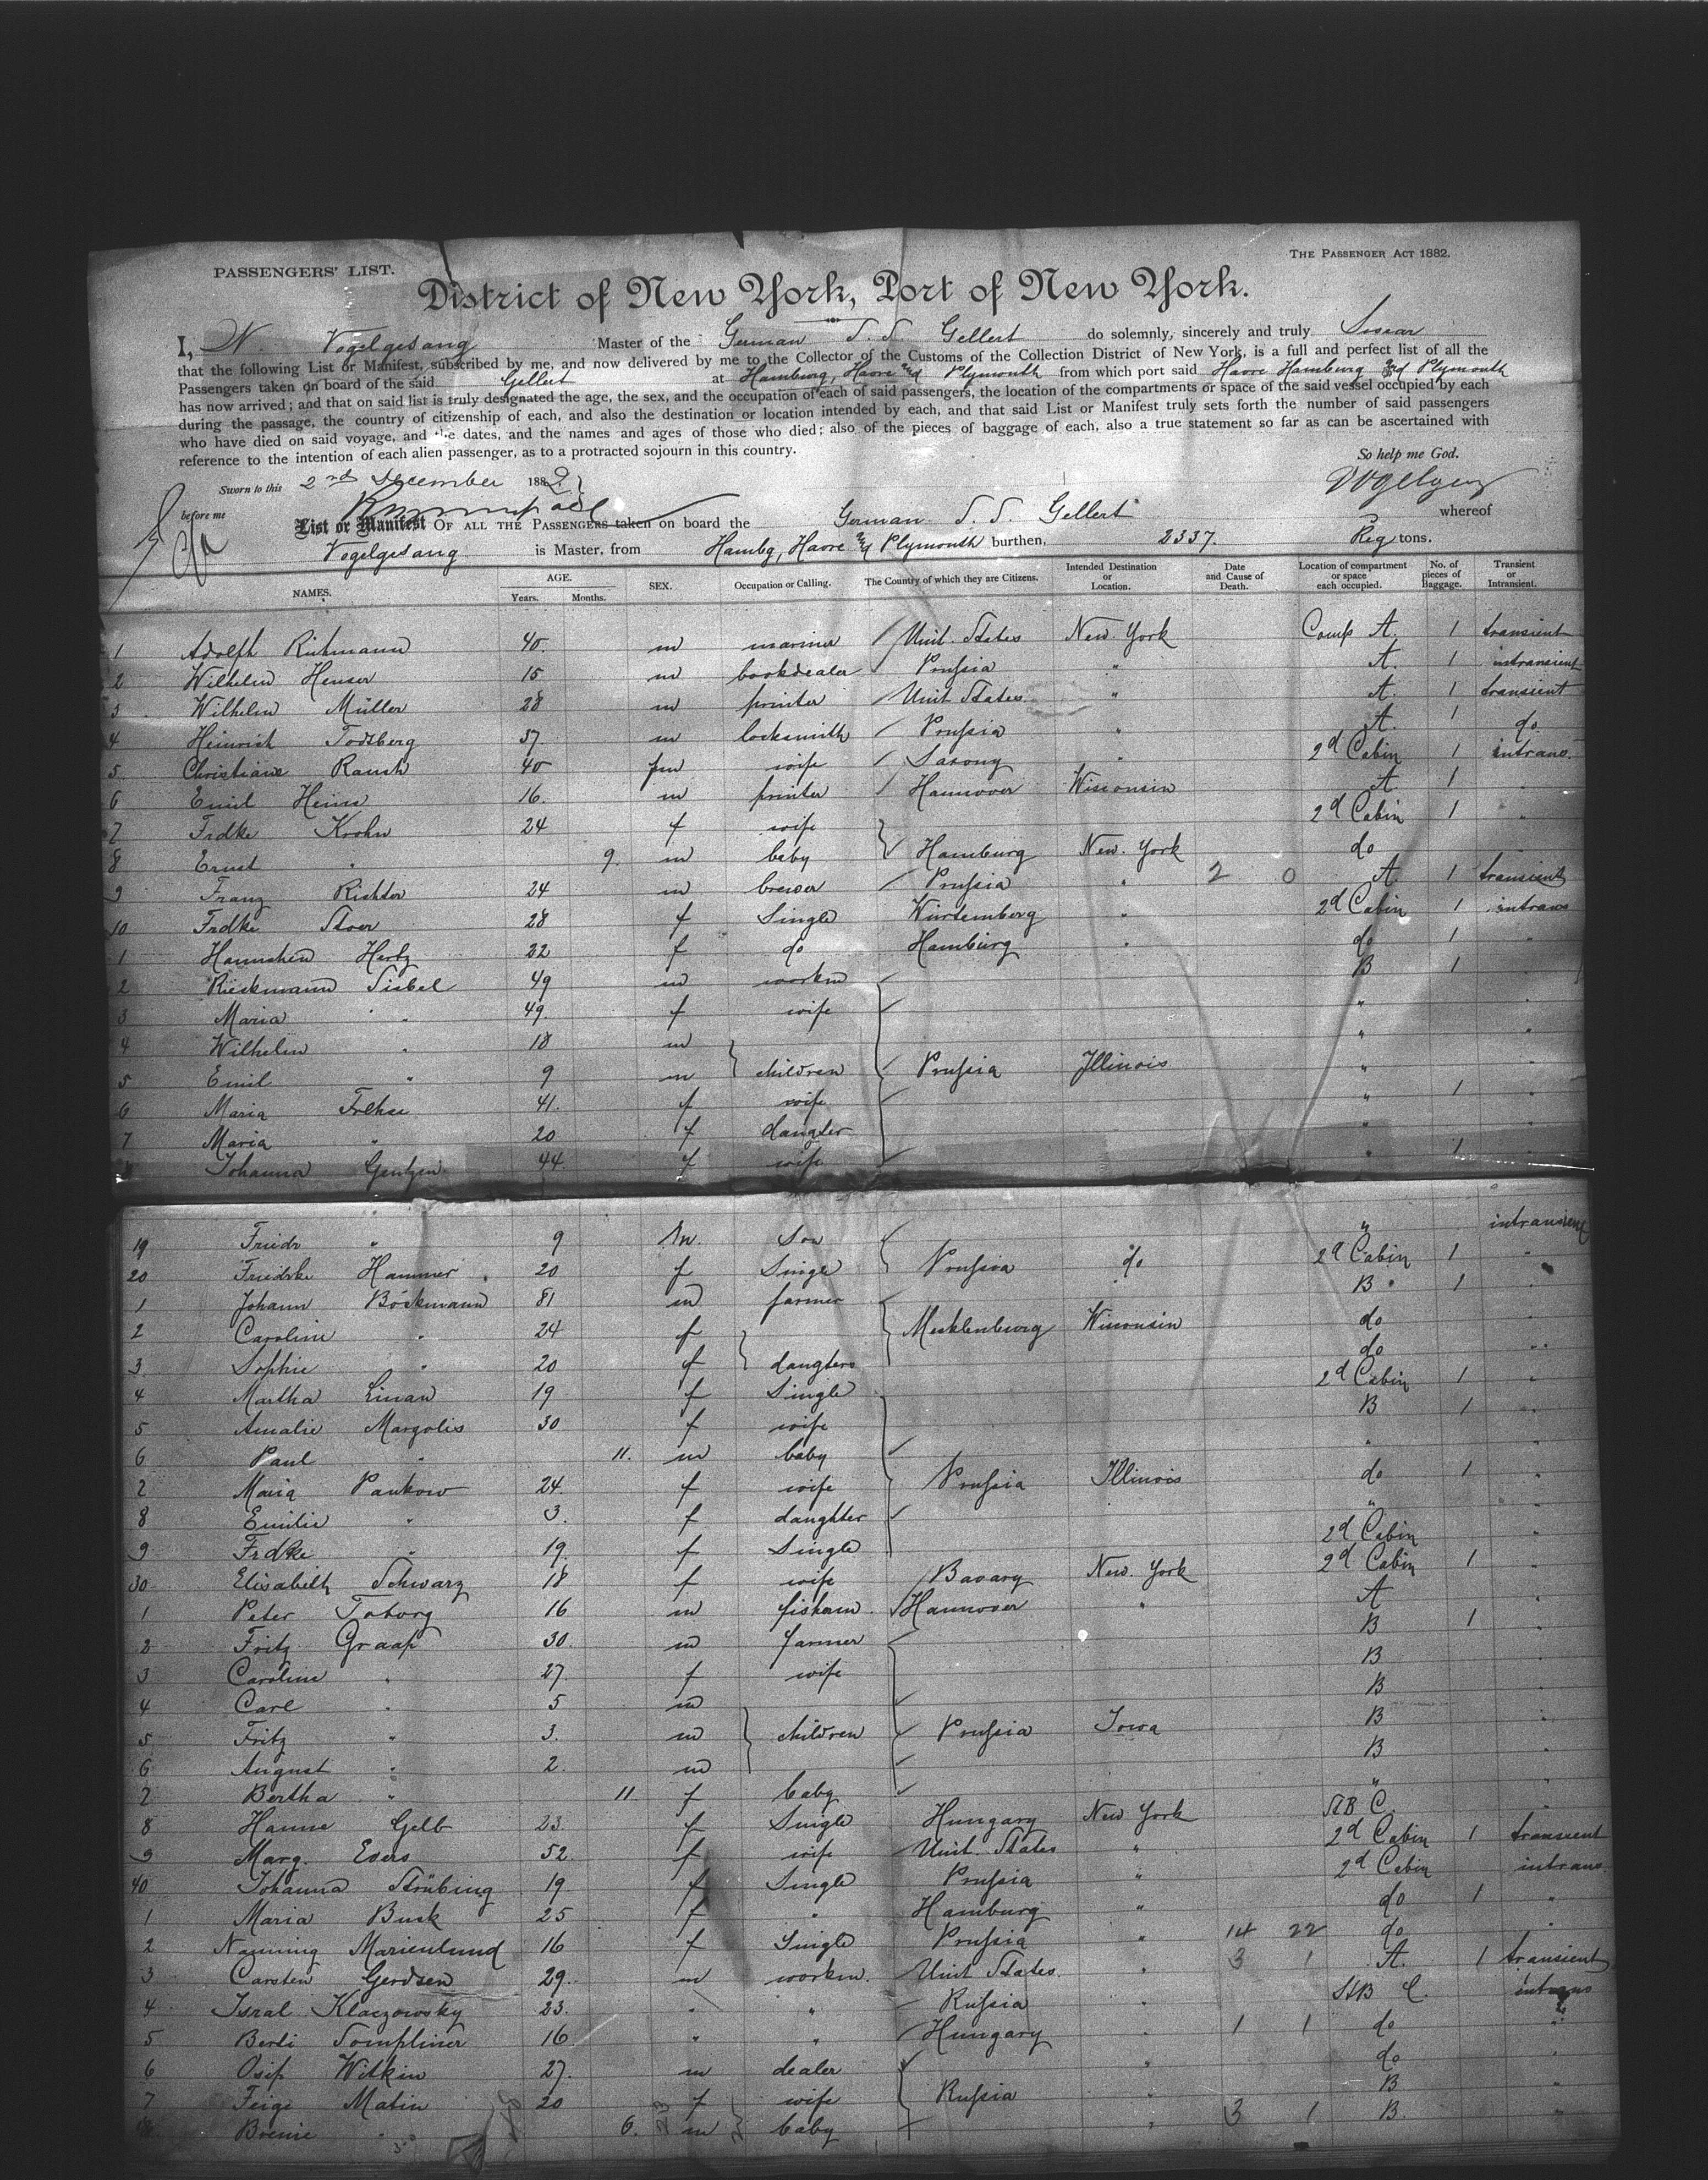 PASSENGERS' LIST.
THE PASSENGER ACT 1882.
District of New York, Port of New York.
I, W. Vogelgesang Master of the German S. S. Gellert do solemnly, sincerely and truly Swear
that the following List or Manifest, subscribed by me, and now delivered by me to the Collector of the Customs of the Collection District of New York, is a full and perfect list of all the
Passengers taken on board of the said Gellert at Hamburg, Havre and Plymouth from which port said Havre Hamburg and Plymouth
has now arrived; and that on said list is truly designated the age, the sex, and the occupation of each of said passengers, the location of the compartments or space of the said vessel occupied by each
during the passage, the country of citizenship of each, and also the destination or location intended by each, and that said List or Manifest truly sets forth the number of said passengers
who have died on said voyage, and the dates, and the names and ages of those who died; also of the pieces of baggage of each, also a true statement so far as can be ascertained with
reference to the intention of each alien passenger, as to a protracted sojourn in this country.
So help me God.
Sworn to this 2nd December 1882
before me
List or Manifest OF ALL THE PASSENGERS taken on board the German S. S. Gellert whereof
Vogelgesang is Master, from Hambg, Havre and Plymouth burthen, 2337. Reg tons.
NAMES. AGE. Years. Months. SEX. Occupation or Calling. The Country of which they are Citizens. Intended Destination or Location. Date and Cause of Death. Location of compartment or space each occupied. No. of pieces of Baggage. Transient or Intransient.
1 Adolph Richmann 40. m mariner Unit. States New York Comp A. 1 transient
2 Wilhelm Henser 15 m bookdealer Prussia " A. 1 intransient
3 Wilhelm Müller 28 m printer Unit States " A. 1 transient
4 Heinrich Todsberg 37 m locksmith Prussia " A. 1 do
5 Christiane Rausch 40 fm wife Saxony " 2d Cabin 1 intrans.
6 Emil Heine 16. m printer Hannover Wisconsin A 1 "
7 Frdke Krohn 24 f wife 2d Cabin 1 "
8 Ernst " 9. m baby Hamburg New York do
9 Franz Richter 24 m brewer Prussia " 2 0 A. 1 transient
10 Frdke Stoer 28 f Single Würtemberg " 2d Cabin 1 intrans
1 Hannchen Hertz 22 f do Hamburg " do 1 "
2 Rieckmann Siebel 49 m workm B 1
3 Maria " 49. f wife " "
4 Wilhelm " 18 m " "
5 Emil " 9 m children Prussia Illinois " "
6 Maria Frehse 41. f wife " 1 "
7 Maria " 20 f daugter " "
Johanna Gentzen 44 f wife " 1 "
19 Friedr " 9 m. Son " intransient
20 Friedrke Hammer 20 f Single Prussia do 2d Cabin 1 "
1 Johann Böckmann 81 m farmer B 1 "
2 Caroline " 24 f Mecklenburg Wisconsin do "
3 Sophie " 20 f daugters do "
4 Martha Linan 19 f Single 2d Cabin 1 "
5 Amalie Margolis 30 f wife B 1 "
6 Paul " 11. m baby " "
7 Maria Pankow 24. f wife Prussia Illinois do 1 "
8 Emilie " 3. f daughter " "
9 Frdke " 19. f Single 2d Cabin "
30 Elisabeth Schwarz 18 f wife Bavary New York 2d Cabin 1 "
1 Peter Toborg 16 m fisherm. Hannover " A
2 Fritz Graap 30. m farmer B 1 "
3 Caroline " 27. f wife B
4 Carl " 5 m B "
5 Fritz " 3. m children Prussia Iowa B "
6 August " 2. m B "
7 Bertha " 11 f baby " "
8 Hanne Gelb 23. f Single Hungary New York StB C. "
9 Marg. Evers 52. f wife Unit. States " 2d Cabin 1 transient
40 Johanna Strübing 19. f Single Prussia " 2d Cabin intrans
1 Maria Buck 25 f " Hamburg " do 1 "
2 Nanning Marienlund 16 f Single Prussia " 14 22 do "
3 Carsten Gerdsen 29. m workm. Unit States. " 3 1 A. 1 transient
4 Isral Klaczowsky 23. " " Russia " StB C. intrans
5 Berti Sompliner 16 " " Hungary " 1 1 do "
6 Osip Witkin 27. m dealer " do "
7 Feige Matin 20 f wife Russia " B "
Boenie " 6. m baby " 3 1 B. "